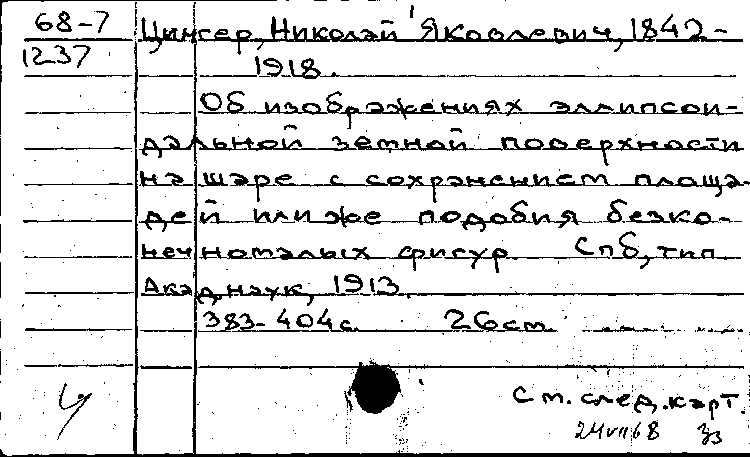 68-7
1237
Цингер, Николай Яковлевич, 1842-
1918.
Об изображениях эллипсои-
дальной земной поверхности
на шаре с сохранением площа-
дей или же подобия безко-
нечномалых фигур. Спб, тип.
Акад. наук, 1913.
383-404 с. 26 см.
См. след. карт.
24 VII 68